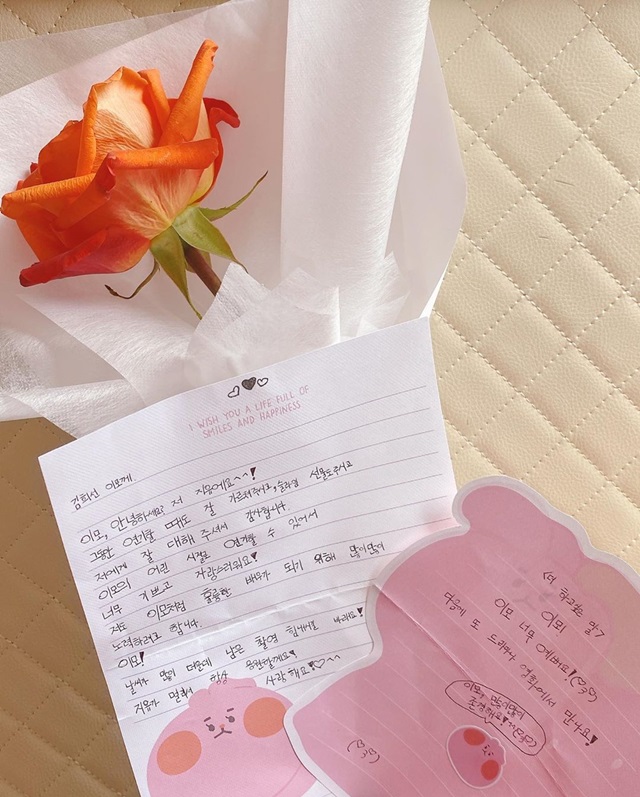 I WISH YOU A LIFE FULL OF
SMILES AND HAPPINESS
김희선 이모께
이모, 안녕하세요? 저 지유에요~~!
그동안 연기할 때도 잘 가르쳐주시고, 슬라임 선물도주시고
저에게 잘 대해 주셔서 감사합니다.
이모의 어린 시절로 연기할 수 있어서
너무 기쁘고 자랑스러워요!
저도 이모처럼 훌륭한 배우가 되기 위해 많이많이
노력하려고 합니다.
이모!
날씨가 많이 더운데 남은 촬영 힘내시길 바래요!
지유가 멀리서 항상 응원할께요
사랑해요
<더 하고싶은 말>
이모
이모 너무 예뻐요!
다음에 또 드라마나 영화에서 만나요!
이모 많이많이
존경해요!